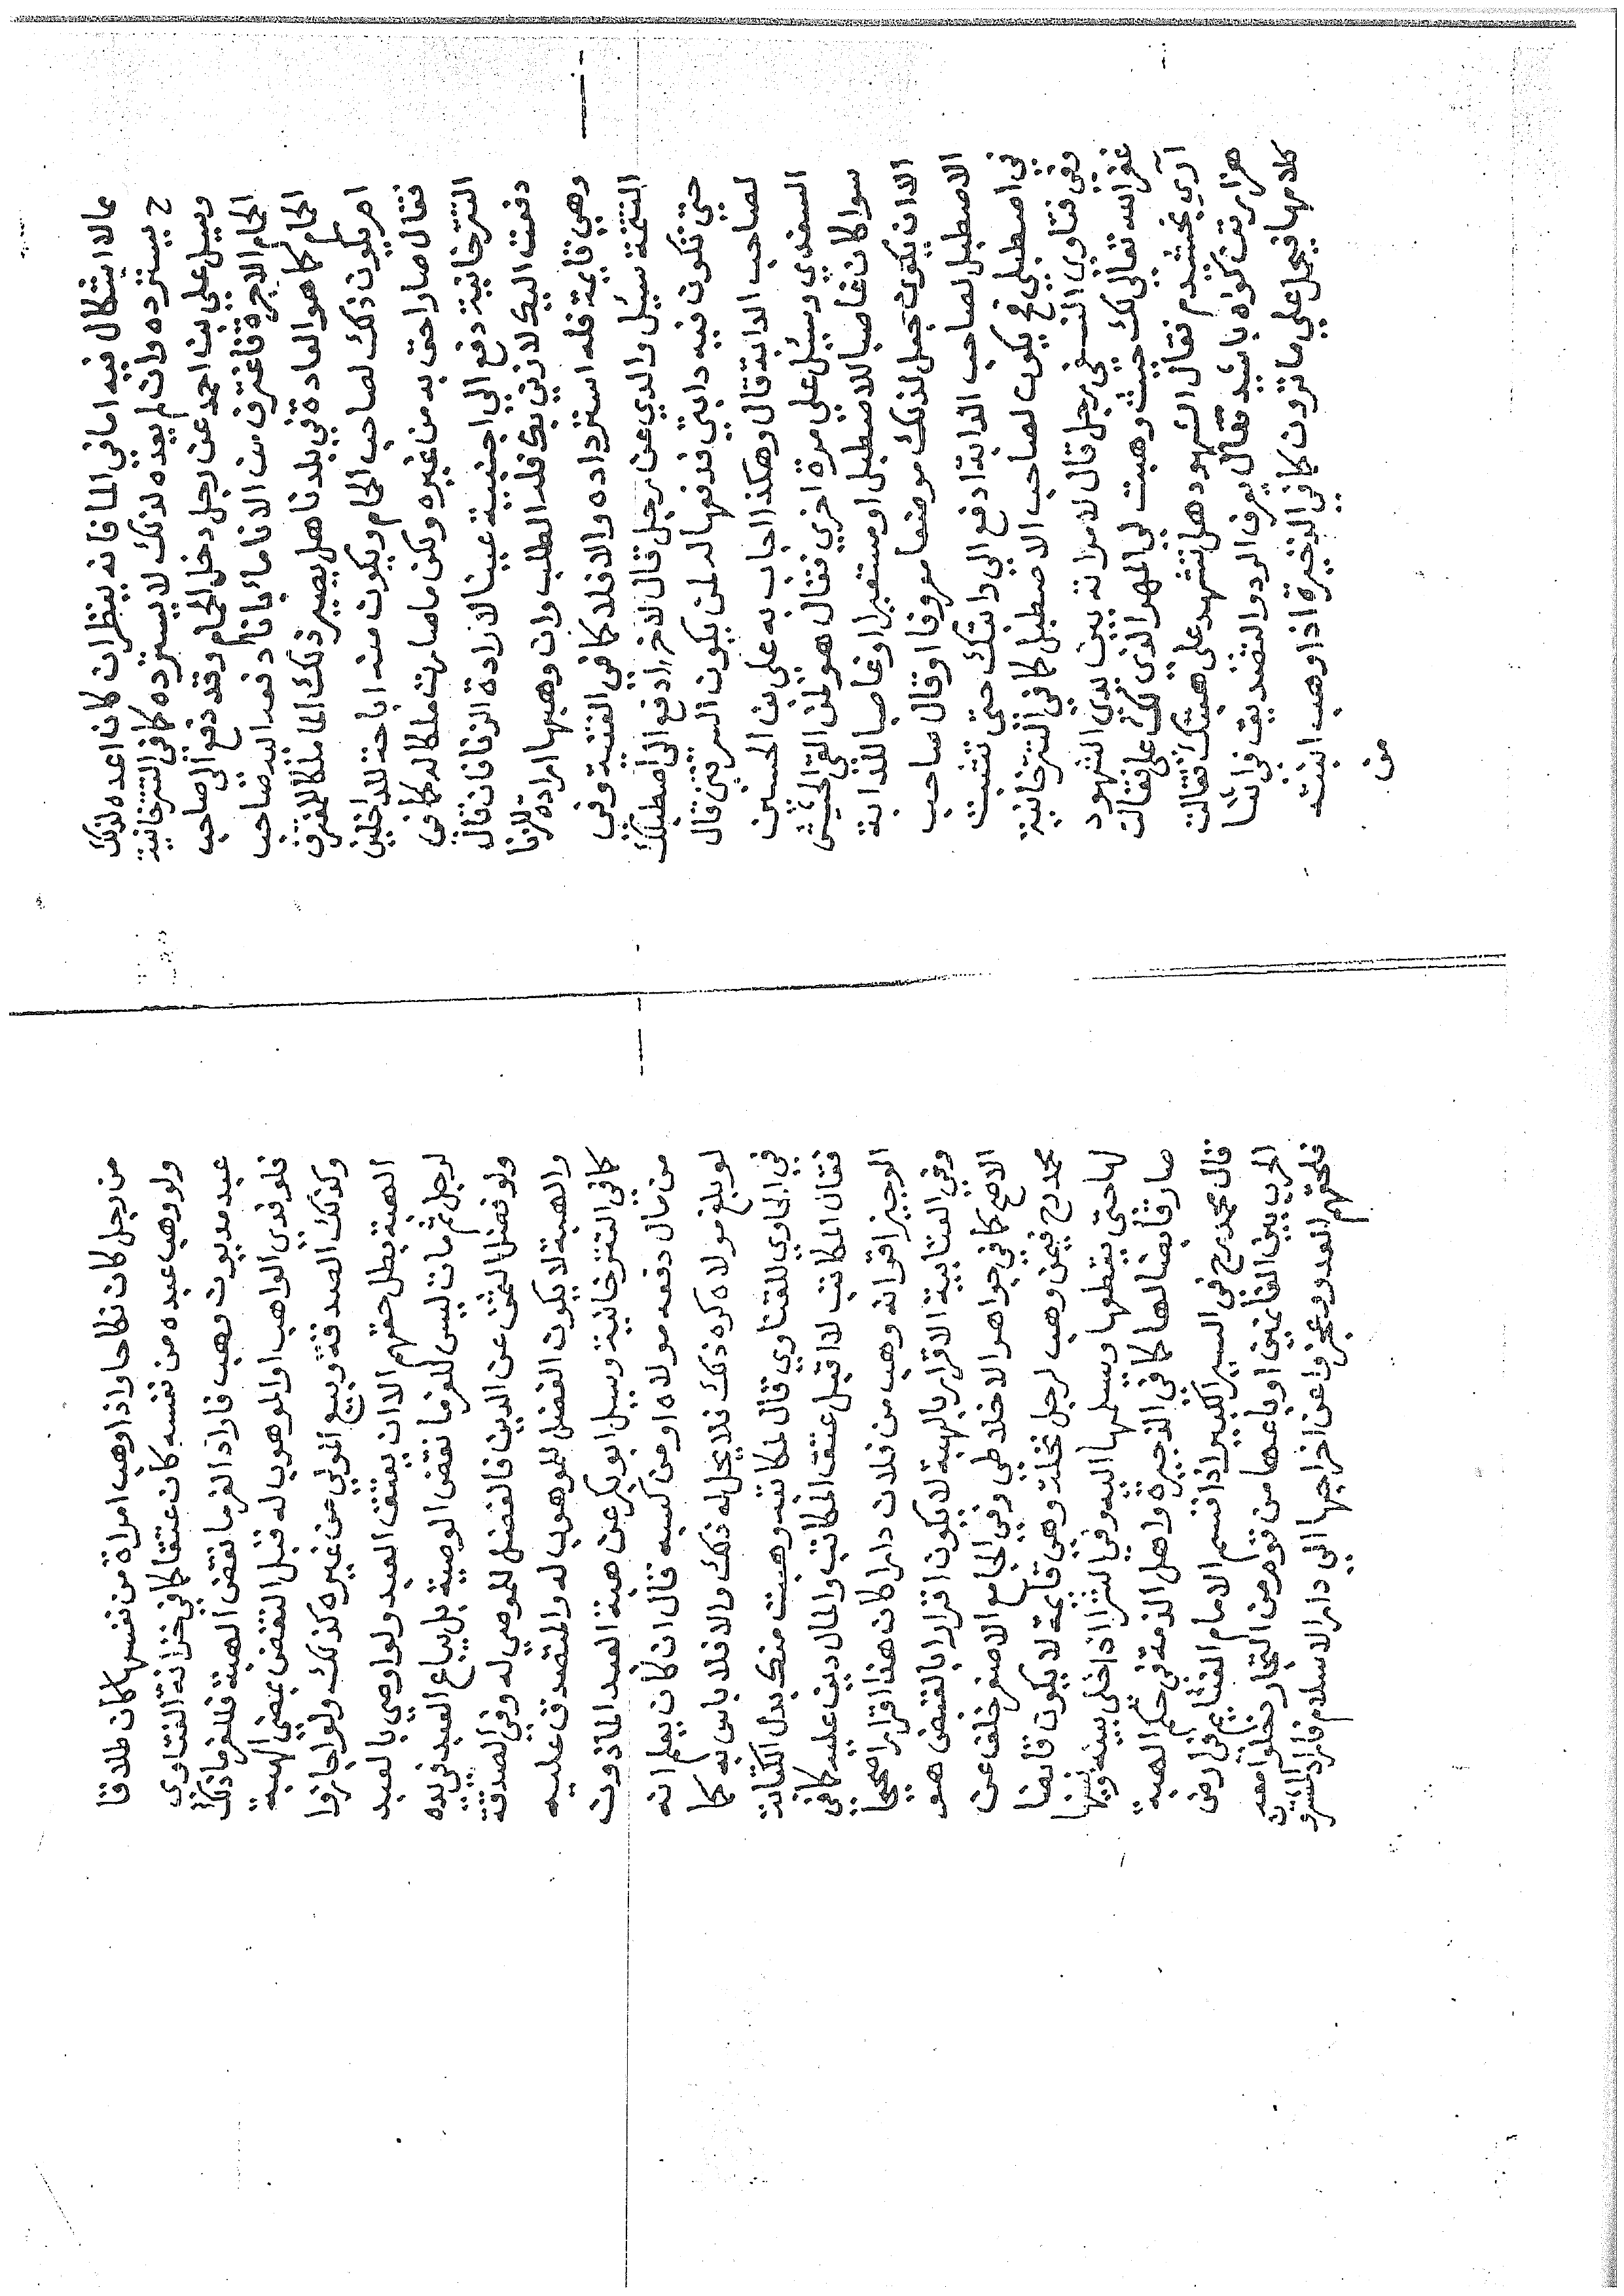 مما لا اشكال فيه اما في الما فانه ينظر ان كان اعده لذلك
ح يسترده وان لم يعده لذلك لا يسترده كما في التترخانية
وسيل علي بن احمد عن رجل دخل الحمام وقد دفع الي صاحب
الحمام الاجرة فاغترف من الانا ما بانا دفعه اليه صاحب
الحمام كما هو العادة في بلدنا هل يصير ذلك الما ملكا للمغترف
ام يكون ذلك لصاحب الحمام ويكون منه اباحة للداخلين
فقال صار احق به من غيره ولكن ما صارت ملكا له كما في
التترخانية دفع الي اجنبية عينا لارادة الزنا فان قال
دفعت اليك لازني بك فله الطلب وان وهبها ارادة للزنا
وهي قايمة فله استرداده والا فلا كما في القنية وفي
التتمة سيل والدي عن رجل قال لاخر ادفع الي اصطبلك
حتي تكون فيه دابتي فدفعها له لمن يكون السرقين قال
لصاحب الدابة قال وهكذا اجاب به علي بن الحسين
السغدي وسيل علي مرة اخري فقال هو لمن القي الحشيش
سوا كان غاصبا للاصطبل او مستعيرا او غاصبا للدابة
الا ان يكون جعل لذلك موضعا معروفا او قال صاحب
الاصطبل لصاحب الدابة ادفع الي دابتك حتي تثبت
في اصطبلي فح يكون لصاحب الاصطبل كما في التترخانية
وفي فتاوي النسفي رجل قال لامراته بين يدي الشهود
غفر الله تعالي لك حيث وهبت لي المهر الذي لك علي فقالت
آري بخشيدم فقال الشهود هل نشهد علي هبتك فقالت
هزار تن كواه باشيد فقال يعرف الرد والتصديق في اثنا
كلامها فيحمل علي ما ترون كما في الذخيرة اذا وهب ابنته
من
من رجل كان نكاحا واذا وهب امراة من نفسها كان طلاقا
ولو وهب عبده من نفسه كان عتقا كما في خزانة الفتاوي
عبد مديون وهب فاراد الغرما نقض الهبة فللغرما ذلك
فلو فدي الواهب او الموهوب له قبل النقض بمضي الهبة
وكذلك الصدقة وبيع المولي من غيره كذلك ولو اجازوا
الهبة بطل حقهم الا ان يعتق العبد ولو اوصي بالعبد
لرجل ثم مات ليس للغرما نقض الوصية بل يباع العبد في يده
ولو فضل الثمن عن الدين فالفضل للموصي له وفي الصدقة
والهبة لا يكون الفضل للموهوب له والمتصدق عليه
كما في التترخانية وسيل ابو بكر عن هبة العبد الماذون
من مال دفعه مولاه او من كسبه قال ان كان يعلم انه
لو بلغ مولاه كره ذلك فلا يحل له ذلك والا فلا باس به كما
في الحاوي للفتاوي قال لمكاتبه وهبت منك بدل الكتابة
فقال المكاتب لا اقبل عتق المكاتب والمال دين عليه كما في
الوجيز اقر انه وهب من فلان دارا كان هذا اقرارا صحيحا
وفي العتابية الاقرار بالهبة لا يكون اقرارا بالقبض هو
الاصح كما في جواهر الاخلاطي وفي الجامع الاصغر خلف عن
محمد رح فيمن وهب لرجل نخلة وهي قايمة لا يكون قابضا
لها حتي يقطعها وسلمها اليه وفي الشرا اذا خلي بينه وبينها
صار قابضا لها كما في الذخيرة واهل الذمة في حكم الهبة
قال محمد رح في السير الكبير اذا قسم الامام الغنايم في ارض
الحرب بين الغانمين او باعها من قوم من التجار دخلوا معه
فلحقهم العدو وعجزوا عن اخراجها الي دار الاسلام فاراد المشترون